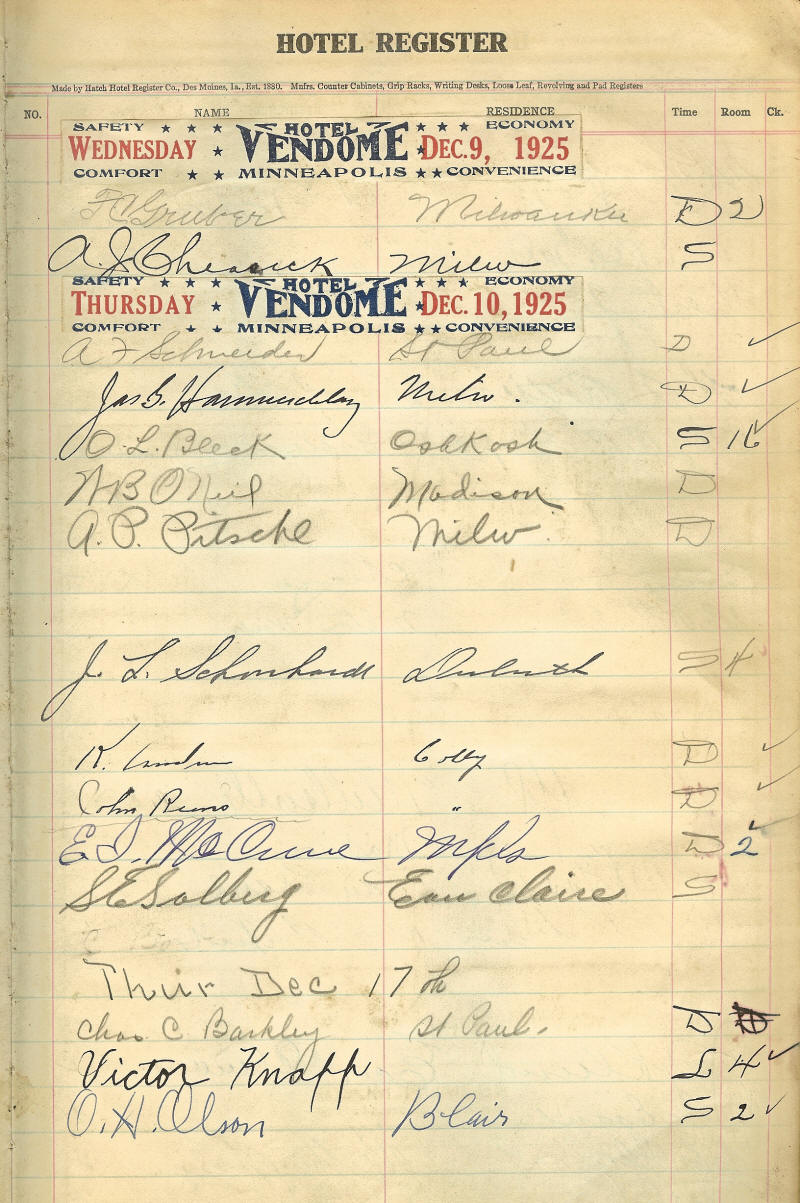 HOTEL REGISTER
Made by Hatch Hotel Register Co., Des Moines, Ia., Est. 1880. Mnfrs. Counter Cabinets, Grip Racks, Writing Desks, Loose Leaf, Revolving and Pad Registers
NO. NAME RESIDENCE Time Room Ck.
SAFETY ★ ★ ★ HOTEL ★ ★ ★ ECONOMY
WEDNESDAY ★ VENDOME ★ DEC. 9, 1925
COMFORT ★ ★ MINNEAPOLIS ★ ★ CONVENIENCE
Gruber Milwaukee D 2
A. J. Milw S
SAFETY ★ ★ ★ HOTEL ★ ★ ★ ECONOMY
THURSDAY ★ VENDOME ★ DEC. 10, 1925
COMFORT ★ ★ MINNEAPOLIS ★ ★ CONVENIENCE
A F Schneider St Paul D ✓
Jas G. Milw. D ✓
O. L. Bleck Oshkosh S 16 ✓
W B O Neil Madison D
A. P. Pitschl Milw. D
J. L. Schonhardt Duluth S 4
K. Colby D ✓
John " D ✓
E J. McCune Mpls D 2 ✓
S E Solberg Eau Claire S
Thur Dec 17 th
Chas C Barkley St Paul. D
Victor Knapp L 4 ✓
O. H. Olson Blair S 2 ✓